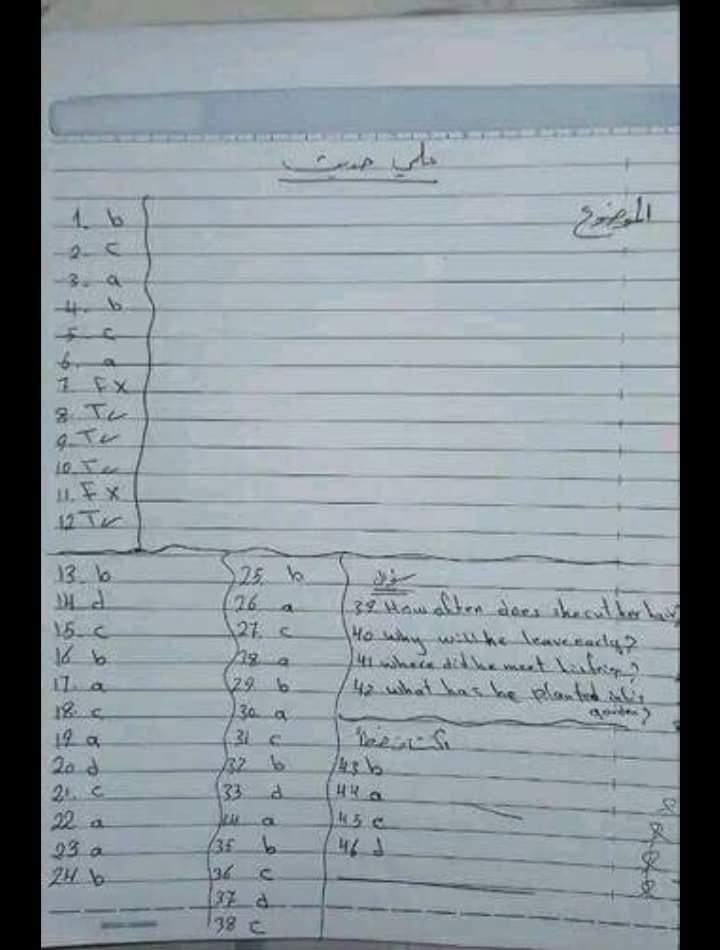 علمي حديث
الموضوع
1. b
2. c
3. a
4. b
5. c
6. a
7 F X
8. T ✓
9. T ✓
10. T ✓
11. F X
12 T ✓
13. b
14 d
15. c
16 b
17. a
18. c
19 a
20 d
21. c
22 a
23 a
24 b
25. b
26 a
27. c
28 a
29 b
30 a
31 c
32 b
33 d
a
35 b
36 c
37 d
38 c
39 How often does she cut her hair
40 why will he leave early?
41 where did he meet his
42 what has he planted in his
garden?
43 b
44 a
45 c
46 d